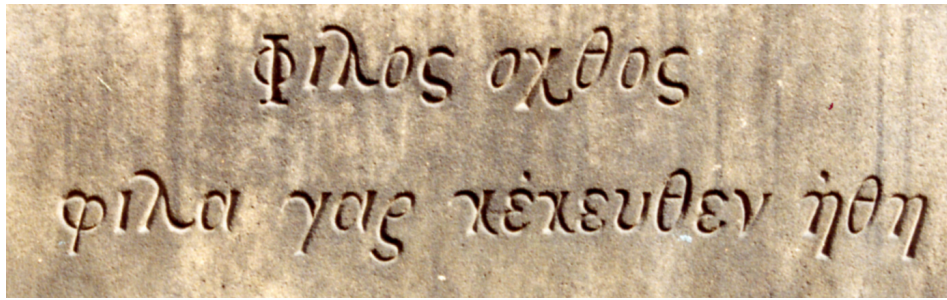 Φιλος οχθος
φιλα γας κἐκευθεν ἠθη